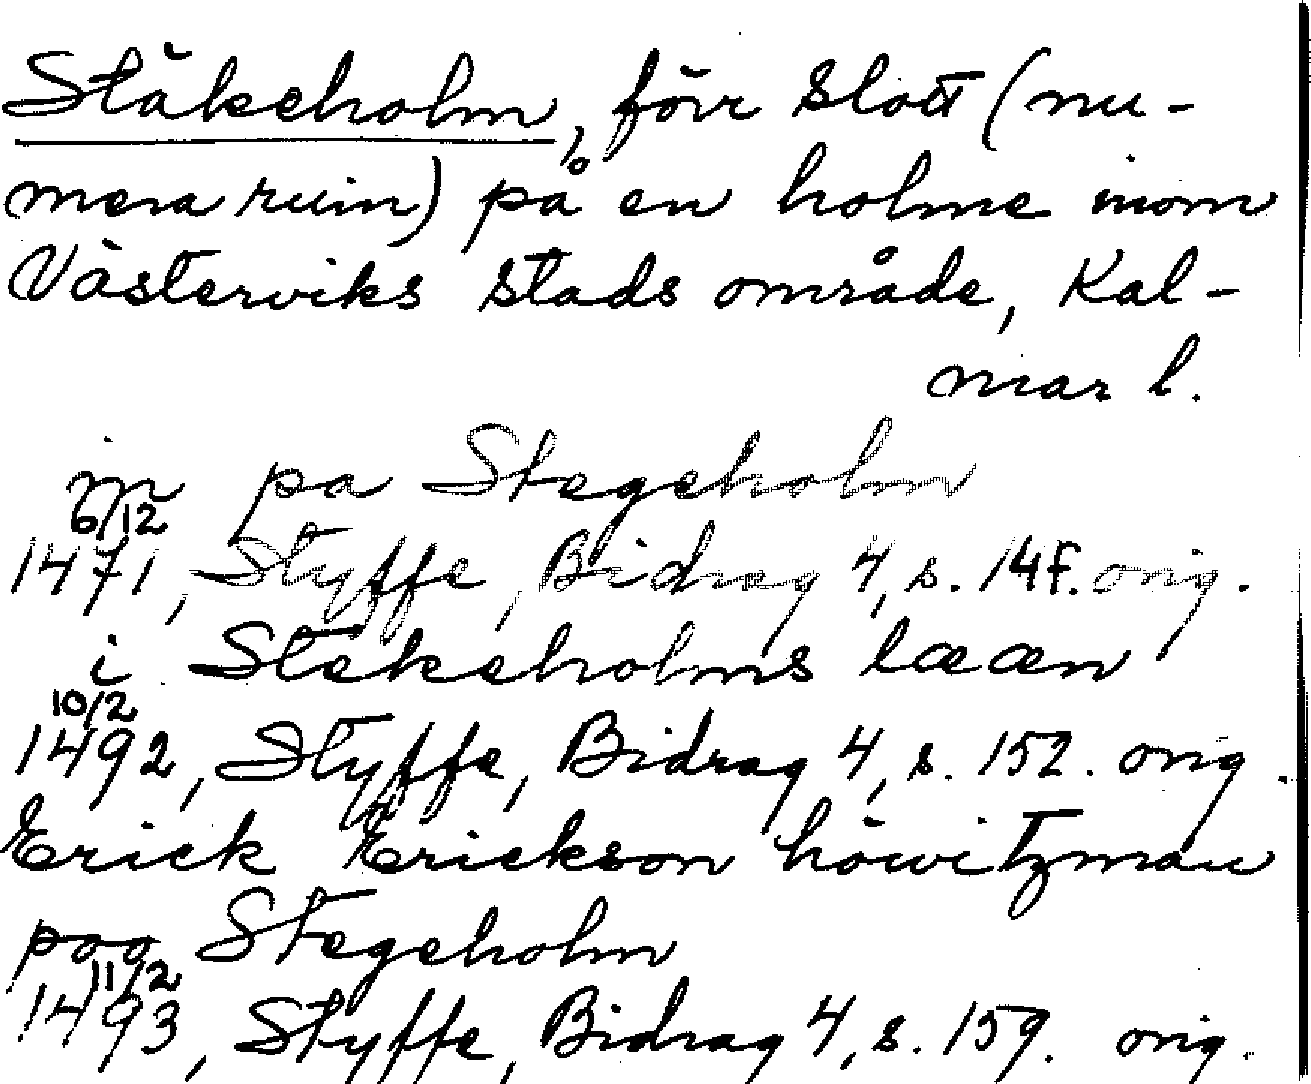 Stäkeholm, förr slott (nu-
mera ruin) på en holme inom
Västerviks stads område, Kal-
mar l.
in pa Stegeholm
6/12
1471, Styffe, Bidrag 4, s. 14 f. orig.
i Stekeholms lææn
10/2
1492, Styffe, Bidrag 4, s. 152. orig.
Erick Erickson höwitzman
poo Stegeholm
11/2
1493, Styffe, Bidrag 4, s. 159. orig.